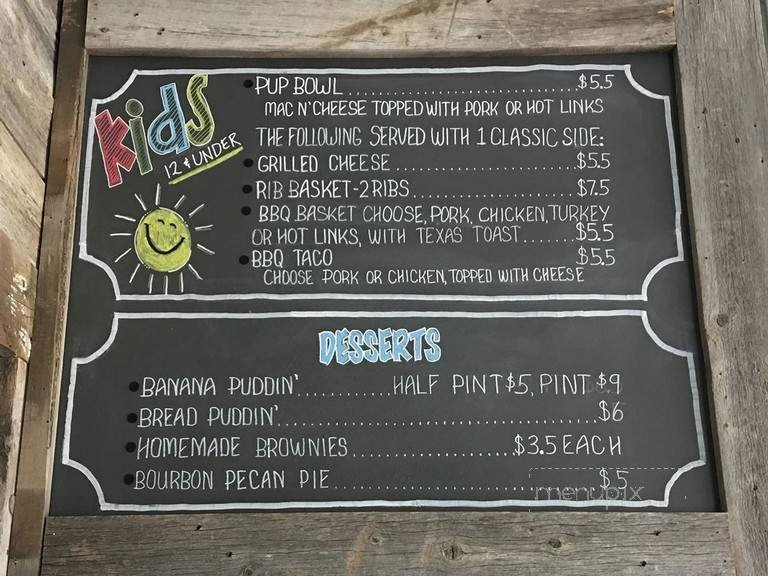 Kids
12 & UNDER
PUP BOWL....................$5.5
MAC N' CHEESE TOPPED WITH PORK OR HOT LINKS
THE FOLLOWING SERVED WITH 1 CLASSIC SIDE:
GRILLED CHEESE....................$5.5
RIB BASKET-2 RIBS....................$7.5
BBQ BASKET CHOOSE, PORK, CHICKEN, TURKEY
OR HOT LINKS, WITH TEXAS TOAST.......$5.5
BBQ TACO $5.5
CHOOSE PORK OR CHICKEN, TOPPED WITH CHEESE
DESSERTS
BANANA PUDDIN'............HALF PINT $5, PINT $9
BREAD PUDDIN'........................................$6
HOMEMADE BROWNIES....................$3.5 EACH
BOURBON PECAN PIE....................$5
menupix